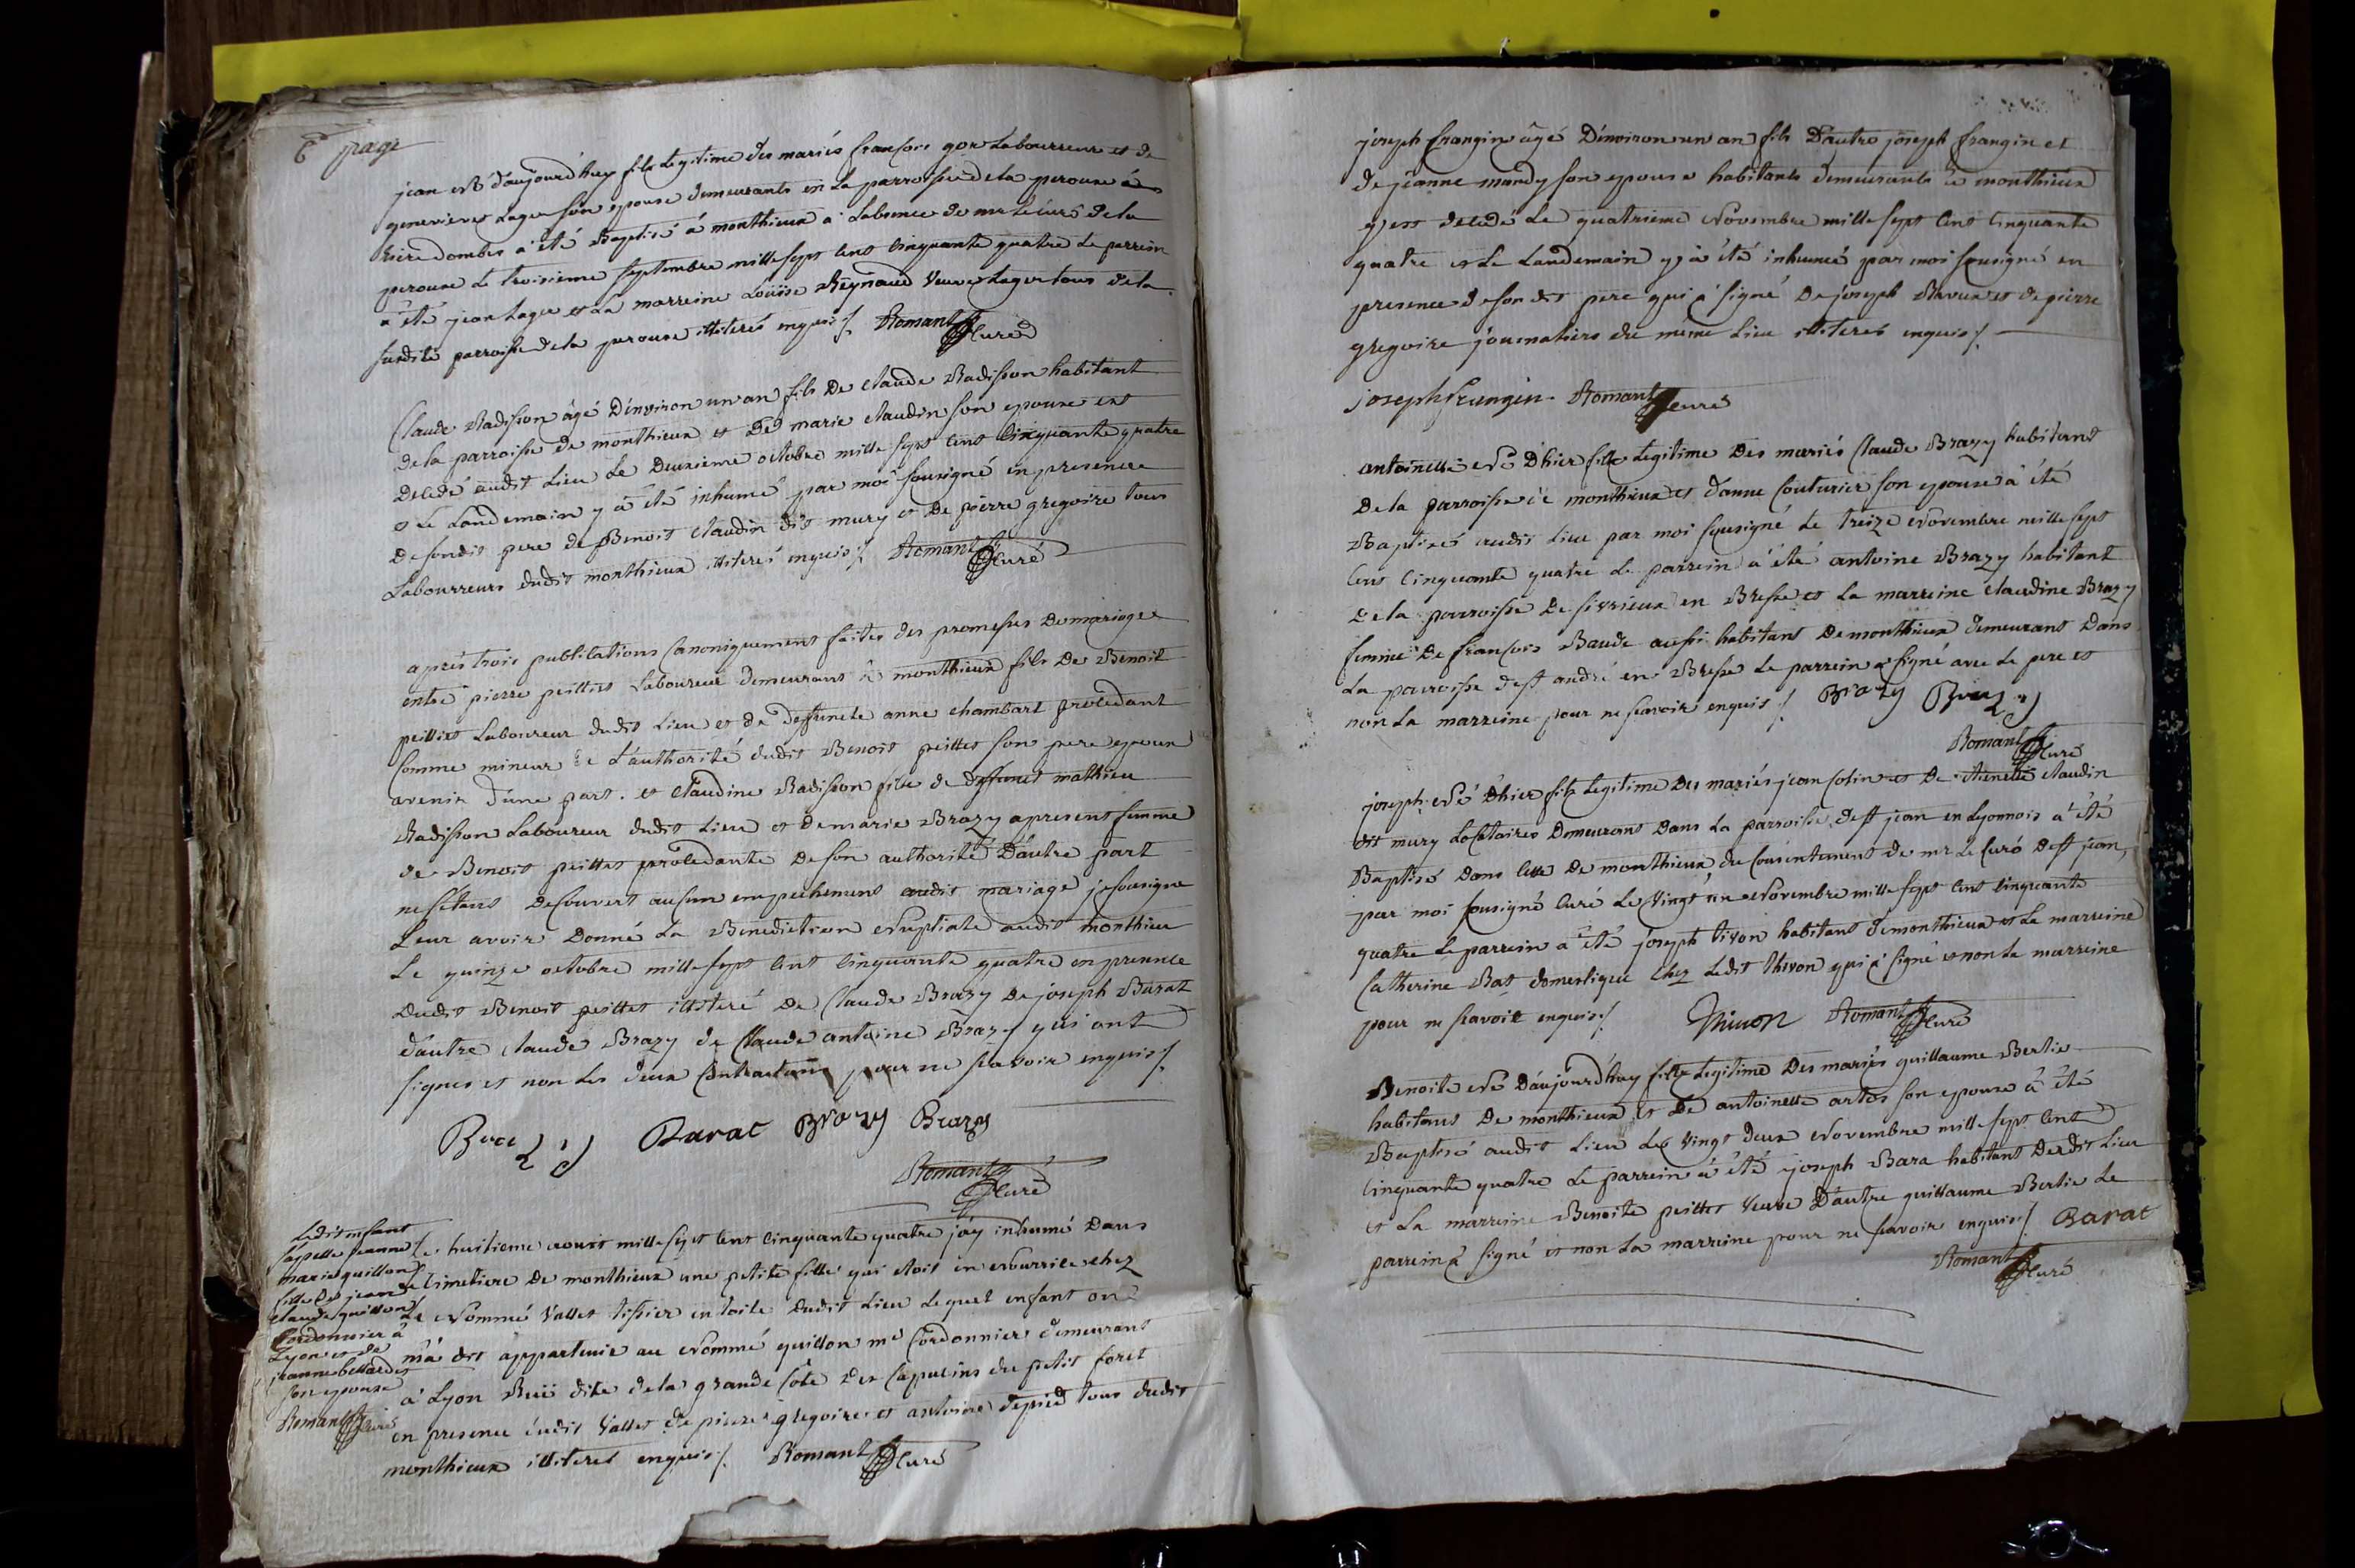 6e page
jean né d'aujourd'huy fils legitime des mariés françois gor Labourreur et de
genevieve Lager son epouse demeurants en La parroisse de la perouse à
dombes a été Baptisé à monthieux a Labsence de mr Le curé de la
perouse Le troisieme septembre mille sept cent cinquante quatre Le parrein
a été jean Lager et La marreine Loüise Reynaud veuve Lager tous de la
susdite parroisse de la perouse illiterés enquis /. Romant Curé
Claude Radisson âgé D'environ un an fils De claude Radisson habitant
de la parroisse de monthieux et De marie claudin son epouse est
Decedé audit Lieu Le Deuxieme octobre mille sept cent cinquante quatre
et Le Landemain y a été inhumé par moi sousigné en presence
De sondit pere de Benoit claudin dit mury et De pierre gregoire tous
Labourreurs dudit monthieux illiterés enquis /. Romant Curé
après trois publications Canoniquement faites des promesses De mariage
entre pierre peillet Laboureur demeurant à monthieux fils De Benoit
peillet Laboureur dudit Lieu et de deffuncte anne chambart procedant
Comme mineur de L'authorité dudit Benoit peillet son pere epoux
avenir d'une part . et Claudine Radisson fille de deffunct mathieu
Radisson Laboureur dudit Lieu et De marie Brazy apresent femme
de Benoit peillet procedante De son authorité D'autre part
ne s'étant Decouvert aucun empechement audit mariage je sousigne
Leur avoir Donné La Benediction Nuptiale audit monthieu
Le quinze octobre mille sept cent cinquante quatre en presence
Dudit Benoit peillet illiteré De Claude Brazy De joseph Barat
d'autre claude Brazy de Claude antoine Brazy qui ont
signés et non Les deux Contractants pour ne sçavoir enquis /.
Brazy Barat Brazy Brazy
Romant Curé
Ledit enfant
s'apelle jeanne
marie guillon
fille De jean
claude guillon
Cordonnier à
Lyon et de
jeanne bellardet
son epouse
Romant Curé
Le huitieme aoust mille sept cent cinquante quatre j'ay inhumé Dans
Le Cimetiere De monthieux une petite fille qui etoit en Nourrice chez
Le Nommé Vallet tissier en toile Dudit Lieu Lequel enfant on
m'a dit appartenir au Nommé guillon me Cordonnier demeurant
à Lyon Ruë dite de la grande Côte Des Capucins du petit foret
en presence dudit Vallet De pierre gregoire et antoine depied tous dudit
monthieux illiterés enquis /. Romant Curé
joseph frangin âgé D'environ un an fils D'autre joseph frangin et
de jeanne mandy son epouse habitants demeurants à monthieux
y est decedé Le quatrieme Novembre mille sept cent cinquante
quatre et Le Landemain y a été inhumé par moi sousigné en
presence de son dit pere qui a signé De joseph Ravier et de pierre
gregoire journaliers du meme Lieu illiterés enquis /.
joseph frangin Romant Curé
antoinette Né D'hier fille Legitime Des mariés Claude Brazy habitant
De la parroisse de monthieux et d'anne Couturier son epouse à été
Baptisés audit Lieu par moi sousigné Le treize Novembre mille sept
cent cinquante quatre Le parrein a été antoine Brazy habitant
De la parroisse De sivrieux en Bresse et La marreine claudine Brazy
femme De françois Baude aussi habitant De monthieux demeurant Dans
La parroisse de st andré en Bresse Le parrein a signé avec Le pere et
non La marreine pour ne sçavoir enquis /. Brazy Brazy
Romant Curé
joseph Né D'hier fils Legitime Des mariés jean Colin et De claudin
dit mury Locataires Demeurant Dans La parroisse de st jean en Lyonnois a été
Baptisé Dans Celle De monthieux du Consentement de mr Le Curé de st jean,
par moi sousigné Curé Le vingt un Novembre mille sept cent cinquante
quatre Le parrein a été joseph tivon habitant de monthieux et La marreine
Catherine Bat domestique chez Ledit thivon qui a signé et non La marreine
pour ne sçavoir enquis /. Thivon Romant Curé
Benoite Né D'aujourd'huy fille Legitime Des mariés guillaume Bertie
habitans De monthieux et De antoinette artos son epouse à été
Baptisé audit Lieu Le vingt deux Novembre mille sept cent
cinquante quatre Le parrein a été joseph Bara habitant Dudit Lieu
et La marreine Benoite peillet veuve D'autre guillaume Bertie Le
parrein à signé et non La marreine pour ne sçavoir enquis /. Barat
Romant Curé